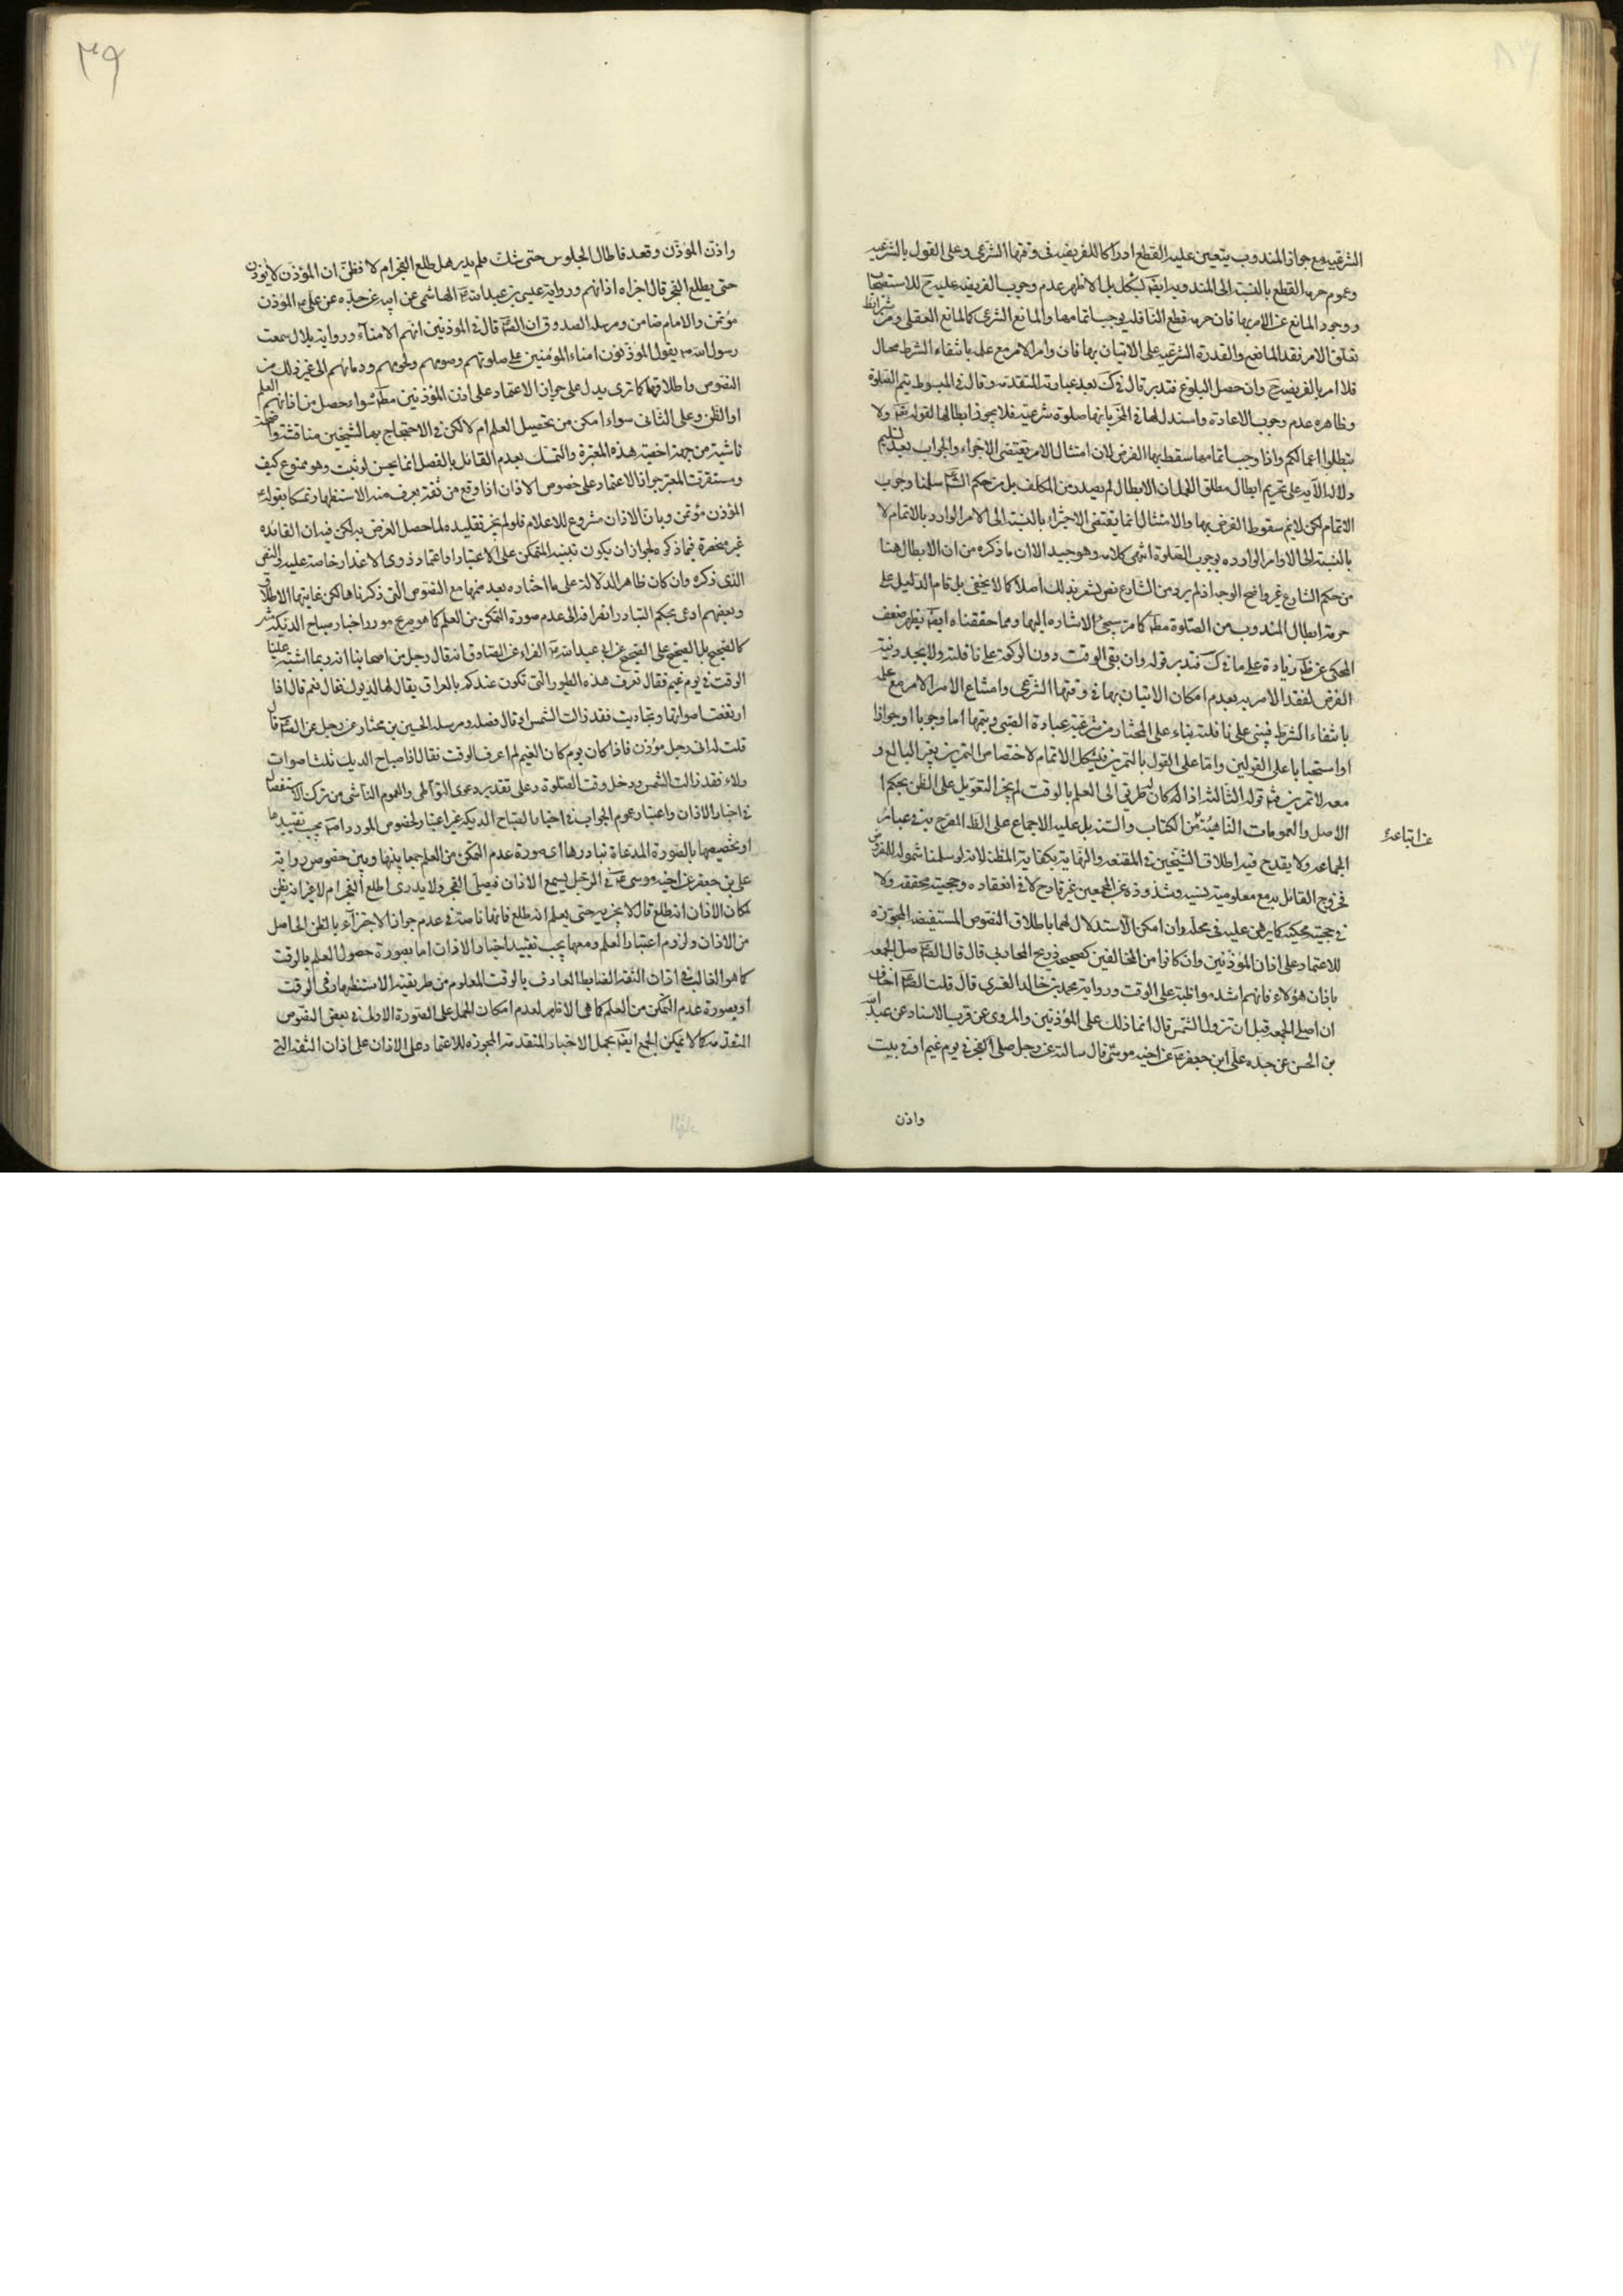 الشرعية مع جواز المندوب يتعين عليه القطع ادراكا للفريضة فى وقتها الشرعى وعلى القول بالشرعية
وعموم حرمة القطع بالنسبة الى المندوبة ايضا يشكل بل الاظهر عدم وجوب الفريضة عليه ح للاستصحاب
ووجود المانع عن الامر بها فان حرمة قطع النافلة يوجب اتمامها والمانع الشرعى كالمانع العقلى ومن شرايط
تعلق الامر فقد المانع والقدرة الشرعية على الاتيان بها فان وامر الامر مع علمه بانتفاء الشرط محال
فلا امر بالفريضة ح وان حصل البلوغ فتدبر قال فى ك بعد عبارته المتقدمة وقال فى المبسوط يتم الصلوة
وظاهره عدم وجوب الاعادة واستدل لها فى المخ بانها صلوة شرعية فلا يجوز ابطالها لقوله تعم ولا
تبطلوا اعمالكم واذا وجب اتمامها سقط بها الفرض لان امتثال الامر يقتضى الاجزاء والجواب بعد تسليم
دلالة الآية على تحريم ابطال مطلق العمل ان الابطال لم يصدر من المكلف بل من حكم الش سلمنا وجوب
الاتمام لكن لانم سقوط الفرض بها والامتثال انما يقتضى الاجزاء بالنسبة الى الامر الوارد بالاتمام لا
بالنسبة الى الاوامر الوارده بوجوب الصلوة انتهى كلامه وهو جيد الا ان ما ذكره من ان الابطال هنا
من حكم الشارع غير واضح الوجه اذ لم يرد من الشارع نص يشعر بذلك اصلا كما لا يخفى بل قام الدليل على
حرمة ابطال المندوب من الصلوة مطلقا كما مر سيجئ الاشاره اليها ومما حققناه ايضا يظهر ضعف
المحكى عن ظ زيادة على ما فى ك فتدبر قوله وان بقى الوقت دون الركعة على نافلته ولا يجدد نية
الفرض لفقد الامر به بعدم امكان الاتيان بها فى وقتها الشرعى وامتناع الامر الامر مع علمه
بانتفاء الشرط فيبنى على نافلته بناء على المختار من شرعية عبادة الصبى ويتمها اما وجوبا او جوازا
او استحبابا على القولين واما على القول بالتمرين فيشكل الاتمام لاختصاص التمرين بغير البالغ و
معه لا تمرين قوله الثالثة اذا كان له طريق الى العلم بالوقت لم يجز التعويل على الظن بحكم
الاصل والعمومات الناهية من الكتاب والسنة بل عليه الاجماع على الظ المصرح به فى عبائر
عن اتباعه
الجماعه ولا يقدح فيه اطلاق الشيخين فى المقنعه والنهاية بكفاية المظنة لانه لو سلمنا شموله للفرض
فخروج القائل به مع معلومية نسبه وشذوذه عن المجمعين غير قادح لا فى انعقاده وحجيته محققه ولا
فى حجيته محكيه كما برهن عليه فى محله وان امكن الاستدلال لهما باطلاق النصوص المستفيضه المجوزه
للاعتماد على اذان المؤذنين وان كانوا من المخالفين كصحيح ذريح المحاربى قال قال الص صل الجمعه
باذان هؤلاء فانهم اشد مواظبة على الوقت ورواية محمد بن خالد القسرى قال قلت للص اخاف
ان اصلى الجمعه قبل ان تزول الشمس قال انما ذلك على المؤذنين والمروى عن قرب الاسناد عن عبد الله
بن الحسن عن جده على ابن جعفر عن اخيه موسى قال سالته عن رجل صلى الفجر فى يوم غيم او فى بيت
واذن
واذن المؤذن وقعد فاطال الجلوس حتى شك فلم يدر هل طلع الفجر ام لا فظن ان المؤذن لا يؤذن
حتى يطلع الفجر قال اجزاه اذانهم ورواية عيسى بن عبد الله الهاشمى عن ابيه عن جده عن على المؤذن
مؤتمن والامام ضامن ومرسلة الصدوق ان الص قال فى المؤذنين انهم الامناء ورواية بلال سمعت
رسول الله ص يقول المؤذنون امناء المؤمنين على صلوتهم وصومهم ولحومهم ودمائهم الى غير ذلك من
النصوص واطلاقها كما ترى يدل على جواز الاعتماد على اذن المؤذنين مطلقا سواء حصل من اذانهم العلم
او الظن وعلى الثانى سواء امكن من تحصيل العلم ام لا لكن فى الاحتجاج بها للشيخين مناقشة واضحة
ناشية من جهة اخصية هذه المعتبرة والتمسك بعدم القائل بالفصل انما يحسن لو ثبت وهو ممنوع كيف
وستقرب المعتبر جواز الاعتماد على خصوص الاذان اذا وقع من ثقة يعرف منه الاستظهار وتمسكا بقوله
المؤذن مؤتمن وبان الاذان مشروع للاعلام فلو لم يجز تقليده لما حصل الغرض به لكن فيه ان الفائده
غير منحصرة فيما ذكره لجواز ان يكون تنبيه المتمكن على الاعتبار او اعتماد ذوى الاعذار خاصة عليه والنص
الذى ذكره وان كان ظاهر الدلالة على ما اختاره بعد ضمها مع النصوص التى ذكرناها لكن غايتها الاطلاق
وبعضهم ادعى بحكم التبادر انصرافه الى عدم صورة التمكن من العلم كما هو صريح مورد اخبار صياح الديكة
كالصحيح بل الصحيح على الصحيح عن ابى عبد الله الفراء عن الصادق انه قال رجل من اصحابنا انه ربما اشتبه علينا
الوقت فى يوم غيم فقال تعرف هذه الطيور التى تكون عندكم بالعراق يقال لها الديوك فقال نعم قال اذا
ارتفعت اصواتها وتجاوبت فقد زالت الشمس او قال فصله ومرسلة الحسين بن مختار عن رجل عن الص قال
قلت له انى رجل مؤذن فاذا كان يوم كان الغيم لم اعرف الوقت فقال اذا صاح الديك ثلثة اصوات
ولاء فقد زالت الشمس ودخل وقت الصلوة وعلى تقدير دعوى التواطى والعموم الناشى من ترك الاستفصال
فى اخبار الاذان واعتبار عموم الجواب فى اخبار الصياح الديكة غير اعتبار لخصوص المورد ايضا يجب تقييدها
او تخصيصها بالصورة المدعاة تبادرها اى صورة عدم التمكن من العلم جمعا بينها وبين خصوص رواية
على بن جعفر عن اخيه موسى فى الرجل يسمع الاذان فيصلى الفجر ولا يدرى اطلع الفجر ام لا غير انه يظن
لمكان الاذان انه طلع قال لا يجزيه حتى يعلم انه طلع فانها ناصة فى عدم جواز الاجتزاء بالظن الحاصل
من الاذان ولزوم اعتبار العلم ومعها يجب تقييد اخبار الاذان اما بصورة حصول العلم بالوقت
كما هو الغالب فى اذان الثقه الضابط العارف بالوقت المعلوم من طريقته الاستظهار فى الوقت
او بصورة عدم التمكن من العلم كما هى الاظهر لعدم امكان الحمل على الصورة الاولى فى بعض النصوص
المتقدمة كما لا يمكن الجمع ايضا بحمل الاخبار المتقدمة المجوزه للاعتماد على الاذان على اذان الثقه التى